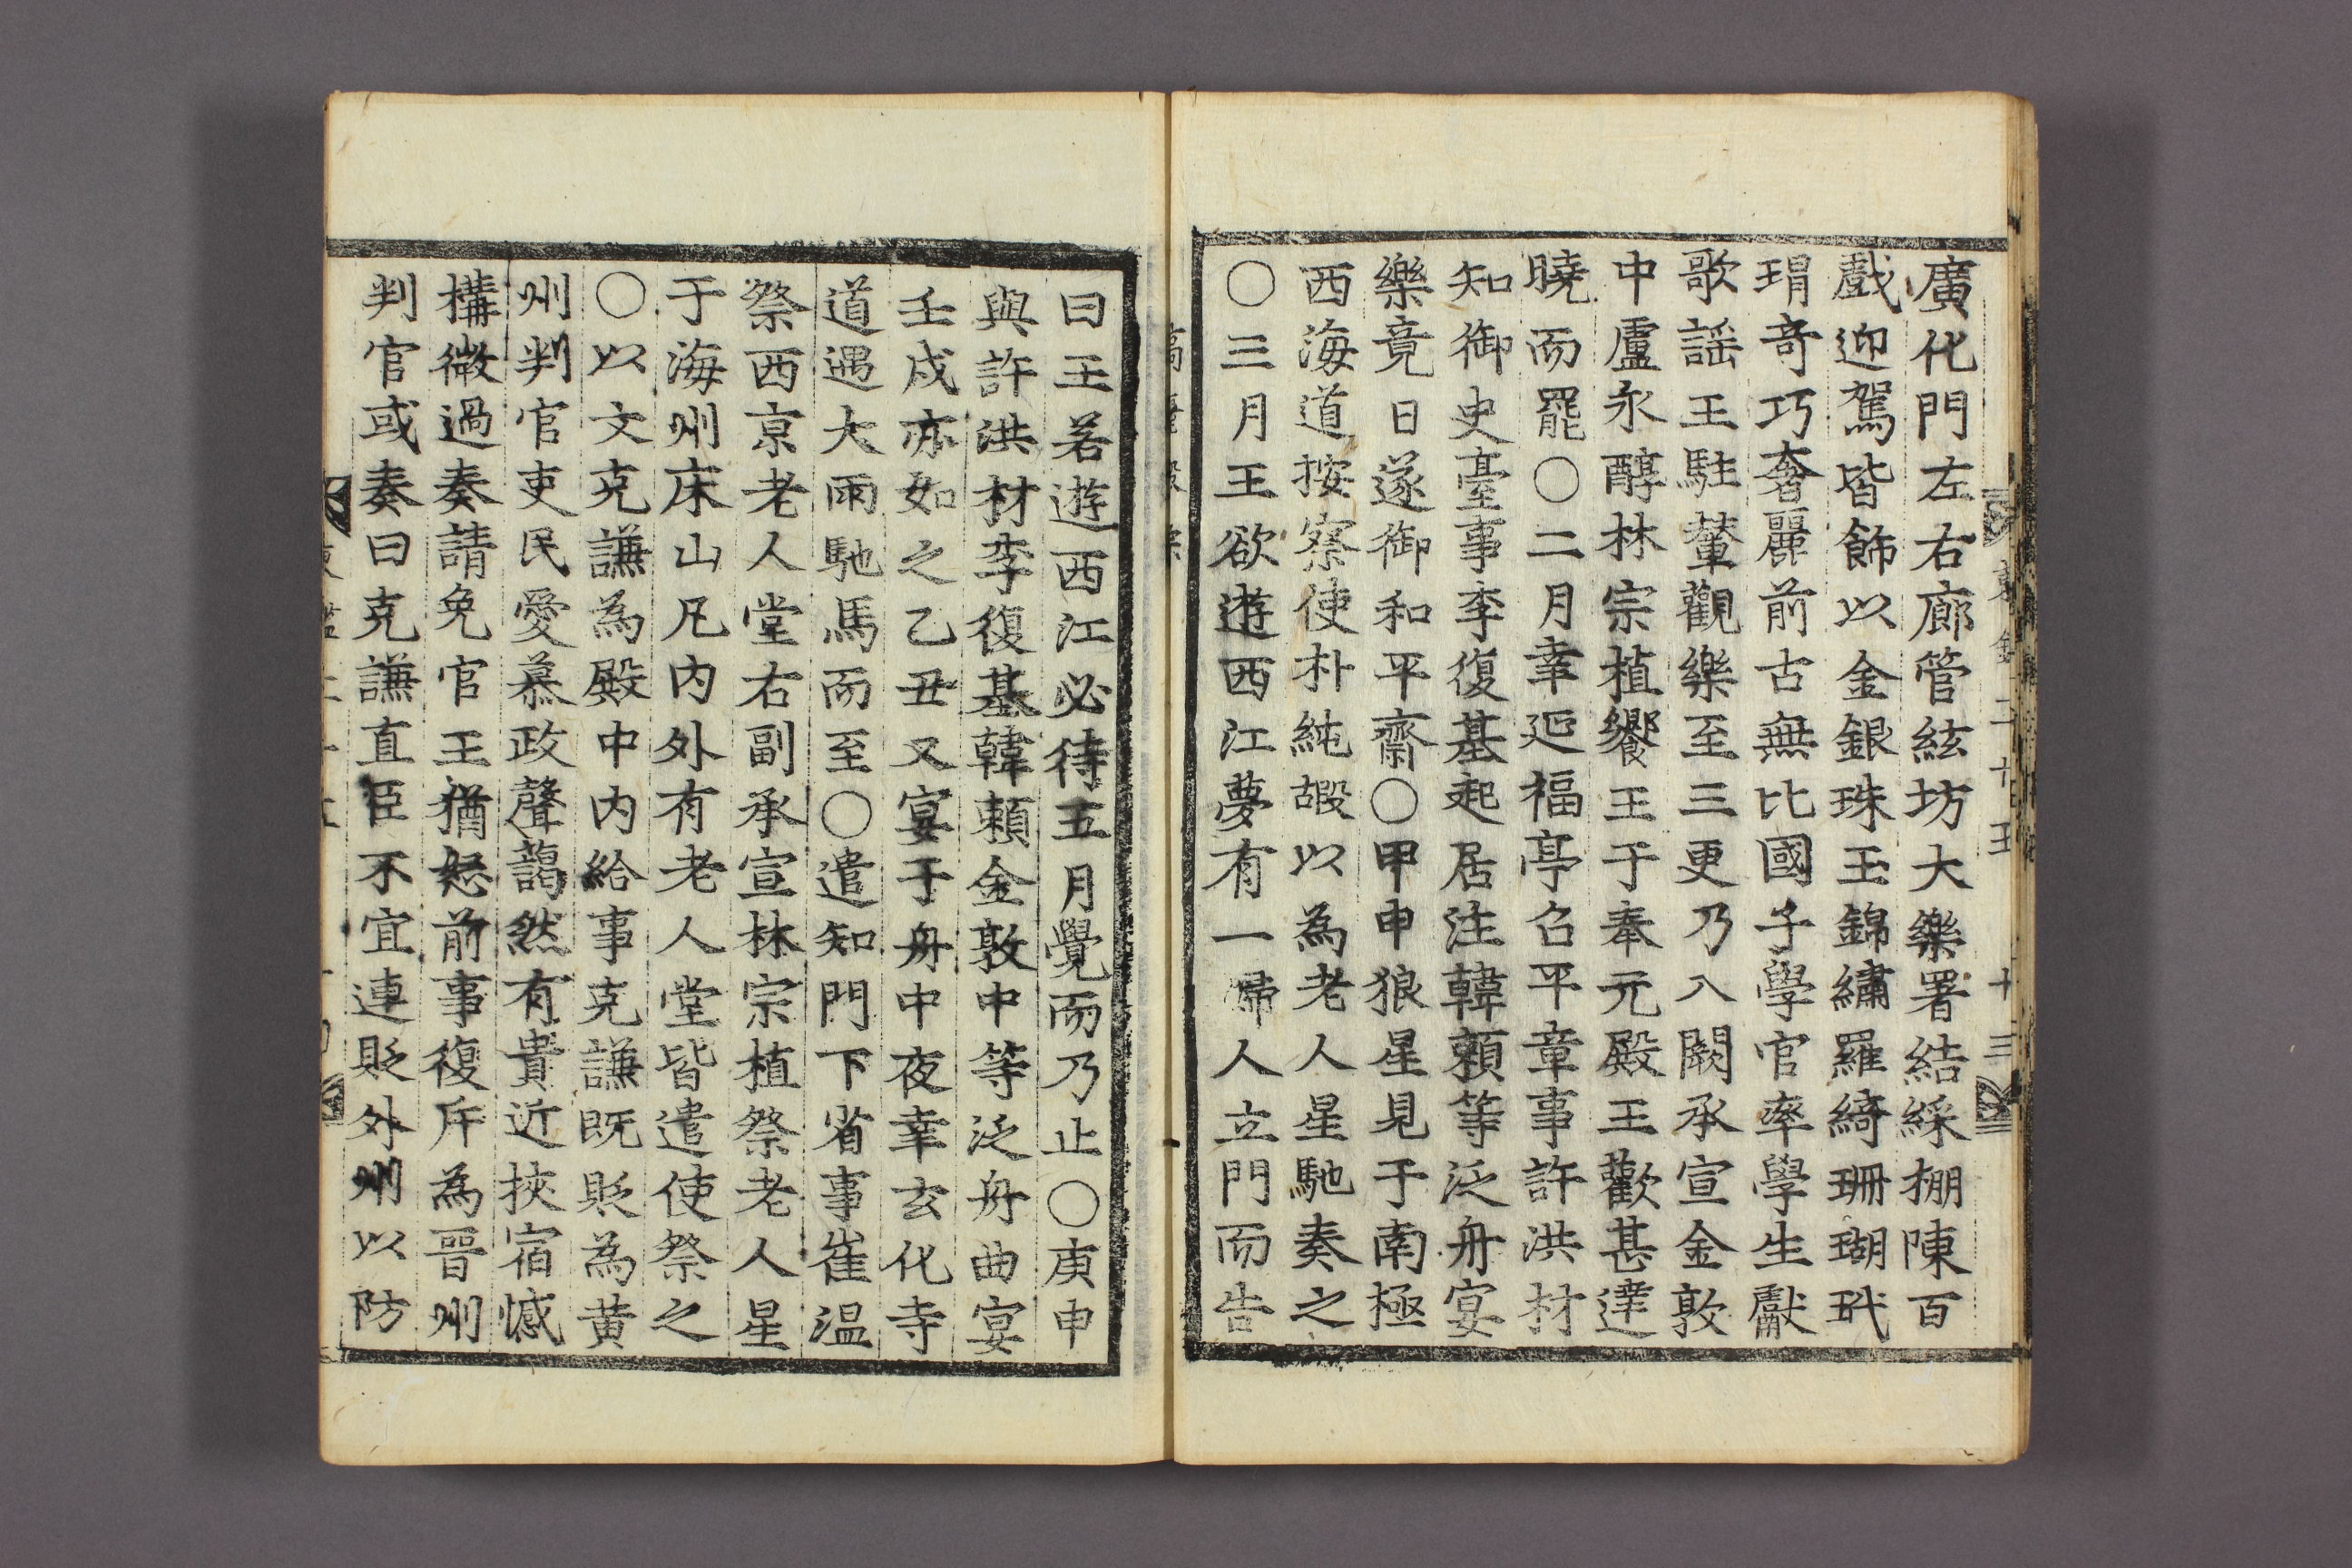 廣化門左右廊管絃坊大樂署結綵棚陳百
戲迎駕皆飾以金銀珠玉錦繡羅綺珊瑚玳
瑁奇巧奢麗前古無比國子學官率學生獻
歌謠王駐輦觀樂至三更乃入闕承宣金敦
中盧永醇林宗植饗王于奉元殿王歡甚達
曉而罷〇二月幸延福亭召平章事許洪材
知御史臺事李復基起居注韓賴等泛舟宴
樂竟日遂御和平齋〇甲申狼星見于南極
西海道按察使朴純嘏以為老人星馳奏之
〇三月王欲遊西江夢有一婦人立門而告
曰王若遊西江必待五月覺而乃止〇庚申
與許洪材李復基韓賴金敦中等泛舟曲宴
壬戌亦如之乙丑又宴于舟中夜幸玄化寺
道遇大雨馳馬而至〇遣知門下省事崔溫
祭西京老人堂右副承宣林宗植祭老人星
于海州床山凡內外有老人堂皆遣使祭之
〇以文克謙為殿中內給事克謙既貶為黃
州判官吏民愛慕政聲藹然有貴近挾宿憾
構微過奏請免官王猶怒前事復斥為晉州
判官或奏曰克謙直臣不宜連貶外州以防